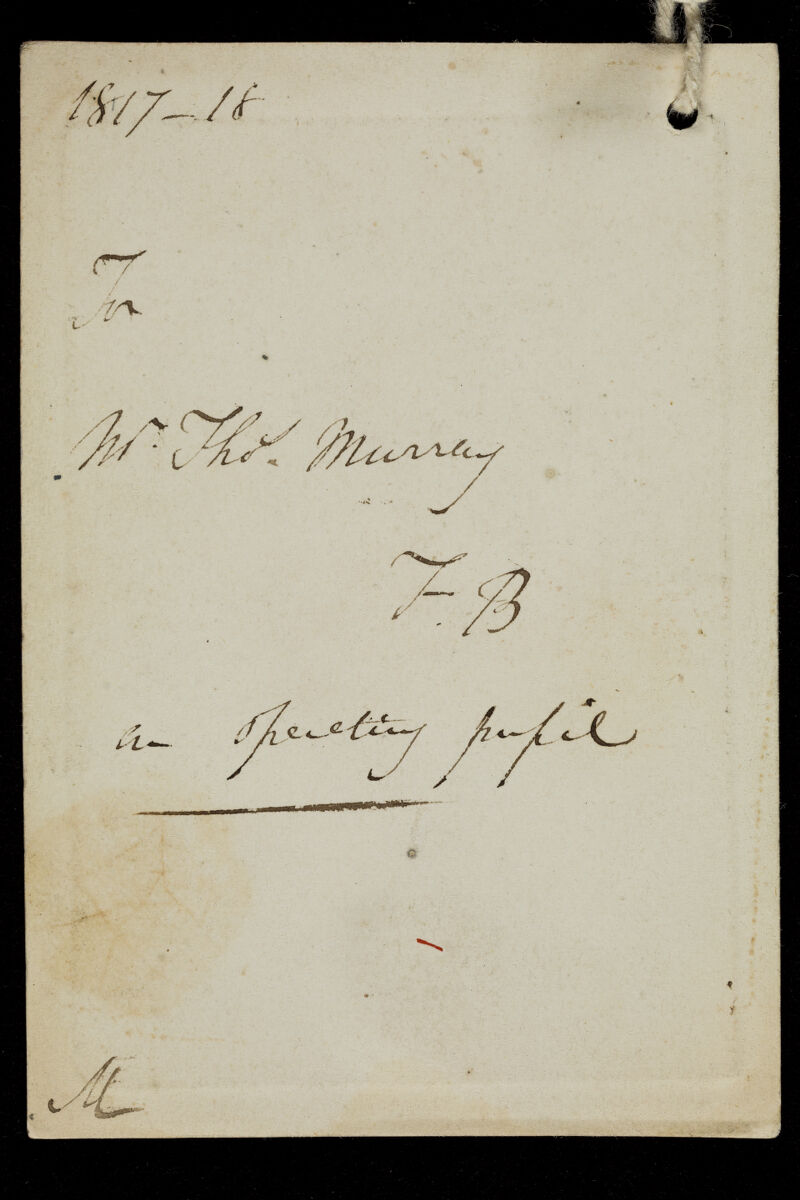 1817-18
For
Mr. Thos. Murray
F. B
an operating pupil
M